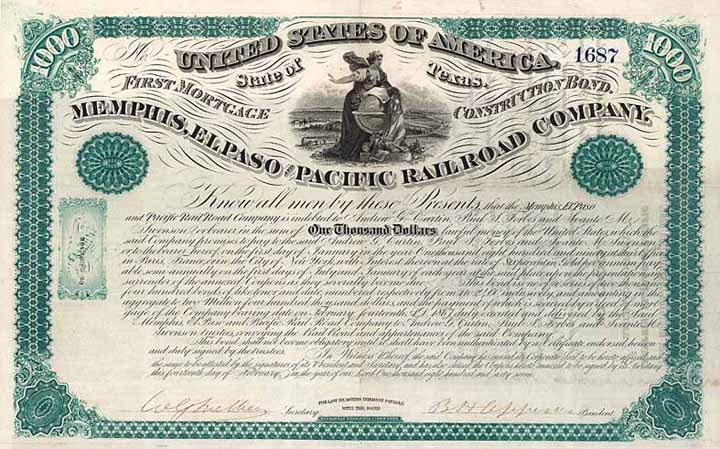 1000
1000
No.
1687
UNITED STATES OF AMERICA.
State of Texas.
FIRST MORTGAGE CONSTRUCTION BOND.
MEMPHIS, EL PASO AND PACIFIC RAILROAD COMPANY.
Know all men by these Presents, that the Memphis, El Paso
and Pacific Rail Road Company is indebted to Andrew G. Curtin, Paul S. Forbes and Swante M.
Swenson or bearer in the sum of One Thousand Dollars lawful money of the United States, which the
said Company promises to pay to the said Andrew G. Curtin, Paul S. Forbes and Swante M. Swenson
or to the bearer hereof, on the first day of January in the year One thousand eight hundred and
able semi annually on the first days of July and January, in each year at the same place upon the presentation
surrender of the annexed Coupons as they severally become due. This bond is one of a series of twenty
four hundred bonds of like and date, numbered respectively from 1 to 2400 inclusively and amounting in the
aggregate to two Million four hundred thousand dollars, and the payment of which is secured by a Mort-
gage of the Company bearing date on February fourteenth, A.D. 1867 duly executed and delivered by the Said
Memphis, El Paso and Pacific Rail Road Company to Andrew G. Curtin, Paul S. Forbes and Swante M.
Swenson Trustees, conveying the Rail Road and appurtenances of the said Company.
This bond shall not become obligatory until it shall have been authenticated by a Certificate endorsed hereon
and duly signed by the trustees.
In Witness Whereof, the said Company has caused its Corporate Seal to be hereto affixed, and
the same to be attested by the signatures of its President and Secretary, and has also caused the Coupons hereto annexed to be signed by its Secretary
this fourteenth day of February, in the year of our Lord One thousand eight hundred and sixty seven.
Secretary
FOR LAST SIX MONTHS INTEREST PAYABLE
WITH THE BOND
President